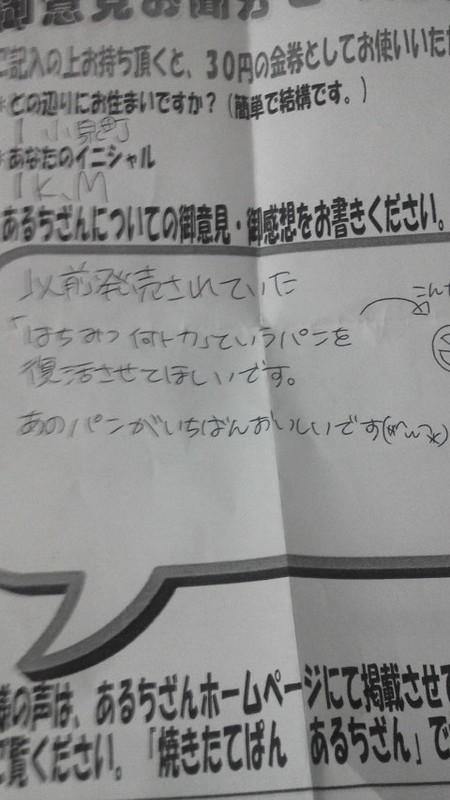 御意見お聞かせ
ご記入の上お持ち頂くと、30円の金券としてお使いいた
*どの辺りにお住まいですか？（簡単で結構です。）
小泉町
*あなたのイニシャル
K、M
あるちざんについての御意見・御感想をお書きください。
以前発売されていた
「はちみつ何トカ」っていうパンを
復活させてほしいです。
あのパンがいちばんおいしいです
こんな
様の声は、あるちざんホームページにて掲載させて
ご覧ください。「焼きたてぱん あるちざん」で